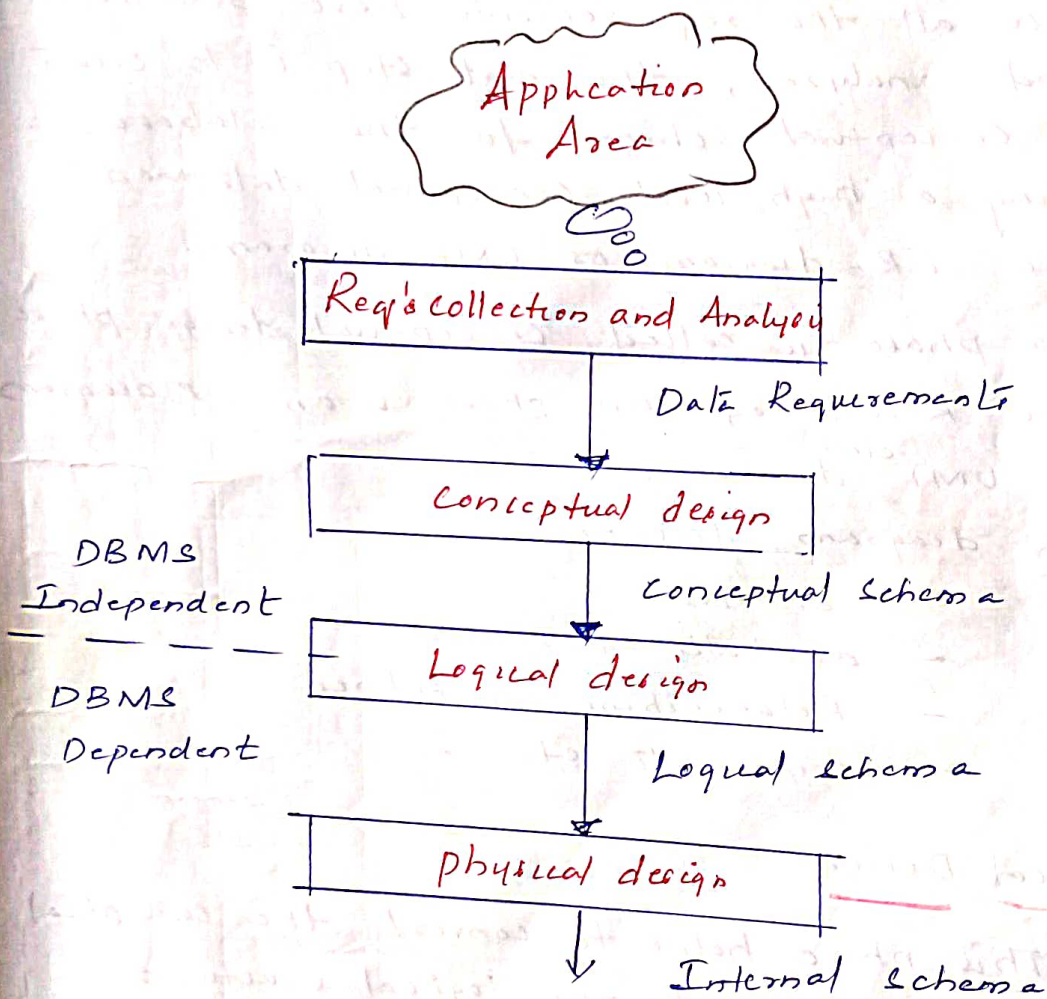 Application
Area
Req's collection and Analysis
Data Requirements
Conceptual design
DBMS
Independent
Conceptual Schema
Logical design
DBMS
Dependent
Logical schema
physical design
Internal Schema